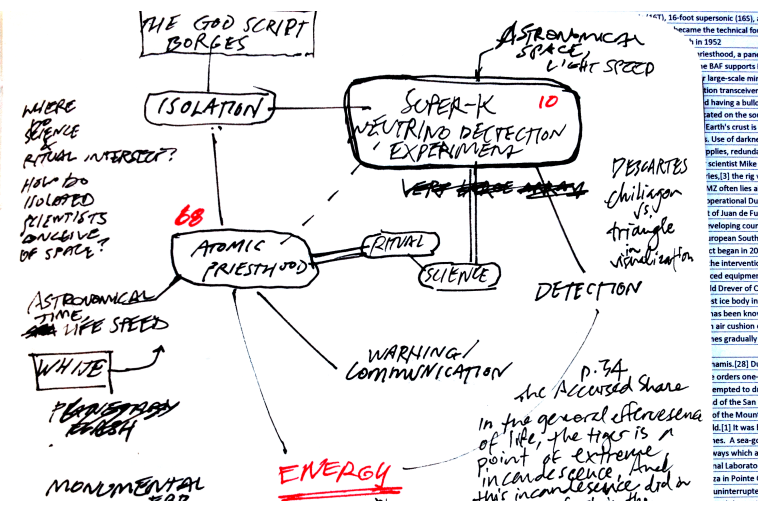 THE GOD SCRIPT
BORGES
ISOLATION
ASTRONOMICAL
SPACE,
LIGHT SPEED
SUPER-K 10
NEUTRINO DETECTION
EXPERIMENT
VERY LARGE ARRAY
WHERE
DO
SCIENCE
&
RITUAL INTERSECT?
HOW DO
ISOLATED
SCIENTISTS
CONCEIVE
OF SPACE?
68
ATOMIC
PRIESTHOOD
RITUAL
SCIENCE
DESCARTES
chiliagon
vs.
triangle
in
visualization
DETECTION
ASTRONOMICAL
TIME,
LIFE SPEED
WHITE
PLANETARY
FLESH
WARNING/
COMMUNICATION
ENERGY
MONUMENTAL
p. 34
the Accursed Share
In the general effervescence
of life, the tiger is a
point of extreme
incandescence. And
this incandescence did in
(16T), 16-foot supersonic (16S), a
became the technical fo
h in 1952
priesthood, a pane
he BAF supports
r large-scale mir
tion transceiver
d having a bullo
cated on the so
Earth's crust is
s. Use of darkne
pplies, redunda
scientist Mike
ries,[3] the rig v
MZ often lies a
operational Du
t of Juan de Fu
veloping cour
uropean South
ct began in 20
he interventio
ced equipmer
ld Drever of C
st ice body in
has been know
n air cushion
nes gradually
namis.[28] Du
e orders one-
empted to dr
d of the San
of the Mount
ld.[1] It was b
nes. A sea-go
ways which a
nal Laborato
za in Pointe
uninterrupte